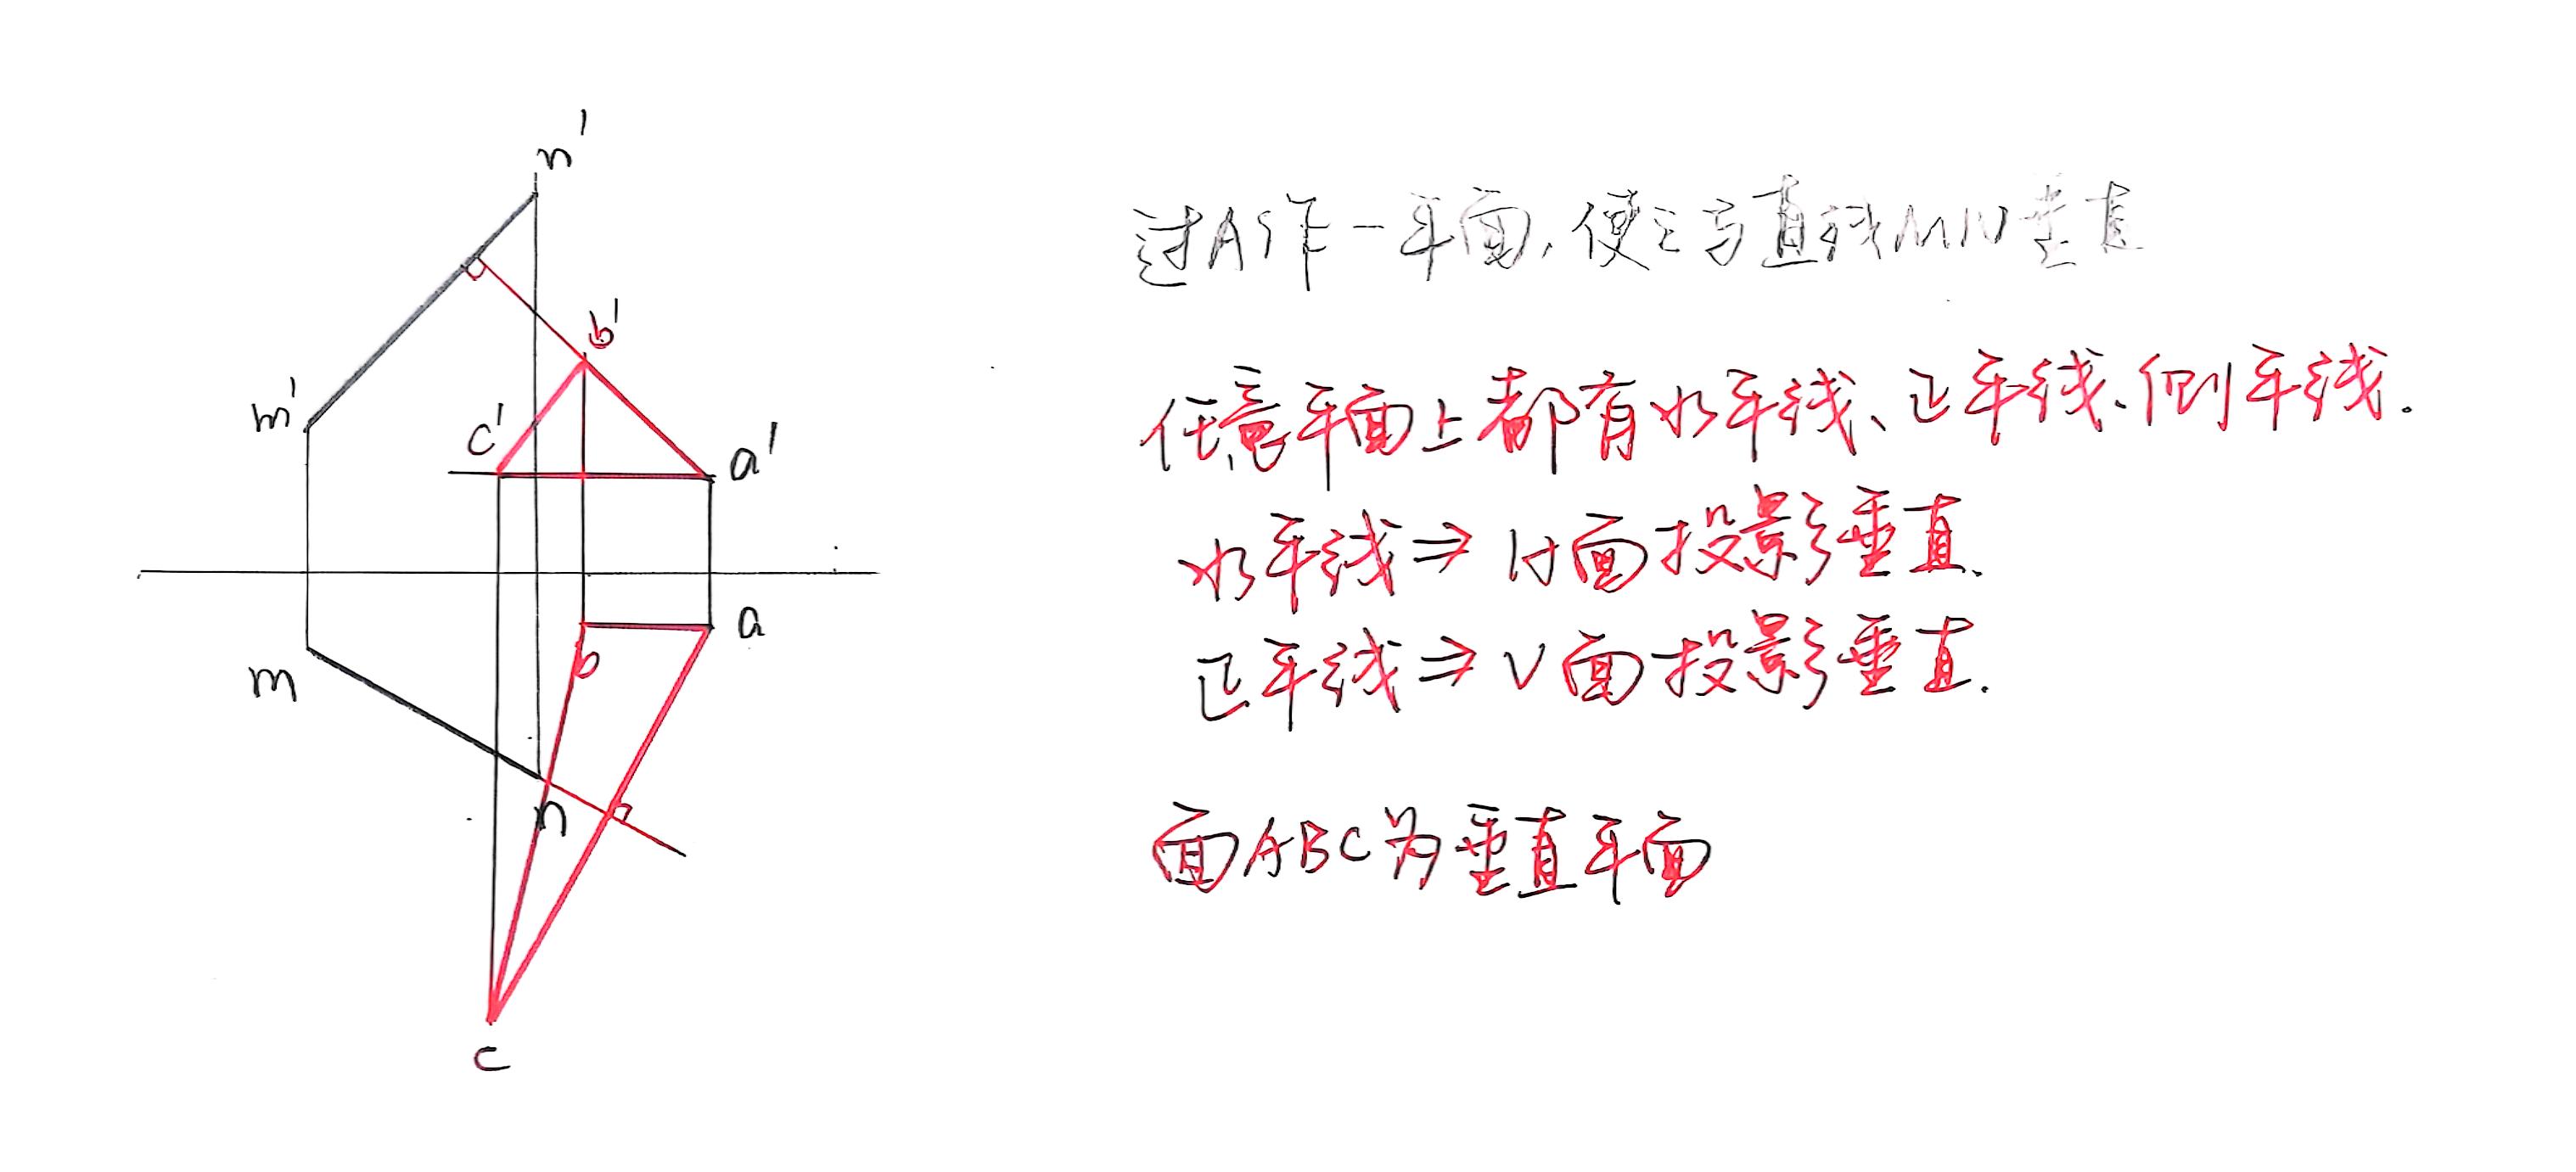 n'
m'
b'
c'
a'
a
b
m
n
c
过A作一平面,使之与直线MN垂直
任意平面上都有水平线、正平线、侧平线.
水平线⇒H面投影垂直.
正平线⇒V面投影垂直.
面ABC为垂直平面